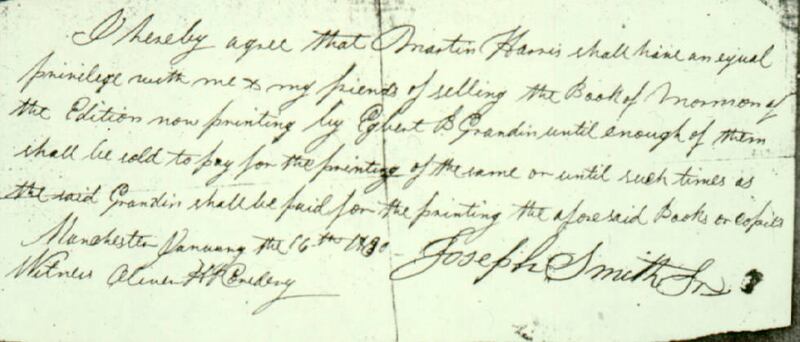 I hereby agree that Martin Harris shall have an equal
privilege with me & my friends of selling the Book of Mormon of
the Edition now printing by Egbert B Grandin until enough of them
shall be sold to pay for the printing of the same or until such times as
the said Grandin shall be paid for the printing the aforesaid Books or copies
Manchester January the 16th 1830 –
Joseph Smith Jr
Witness Oliver H P Cowdery